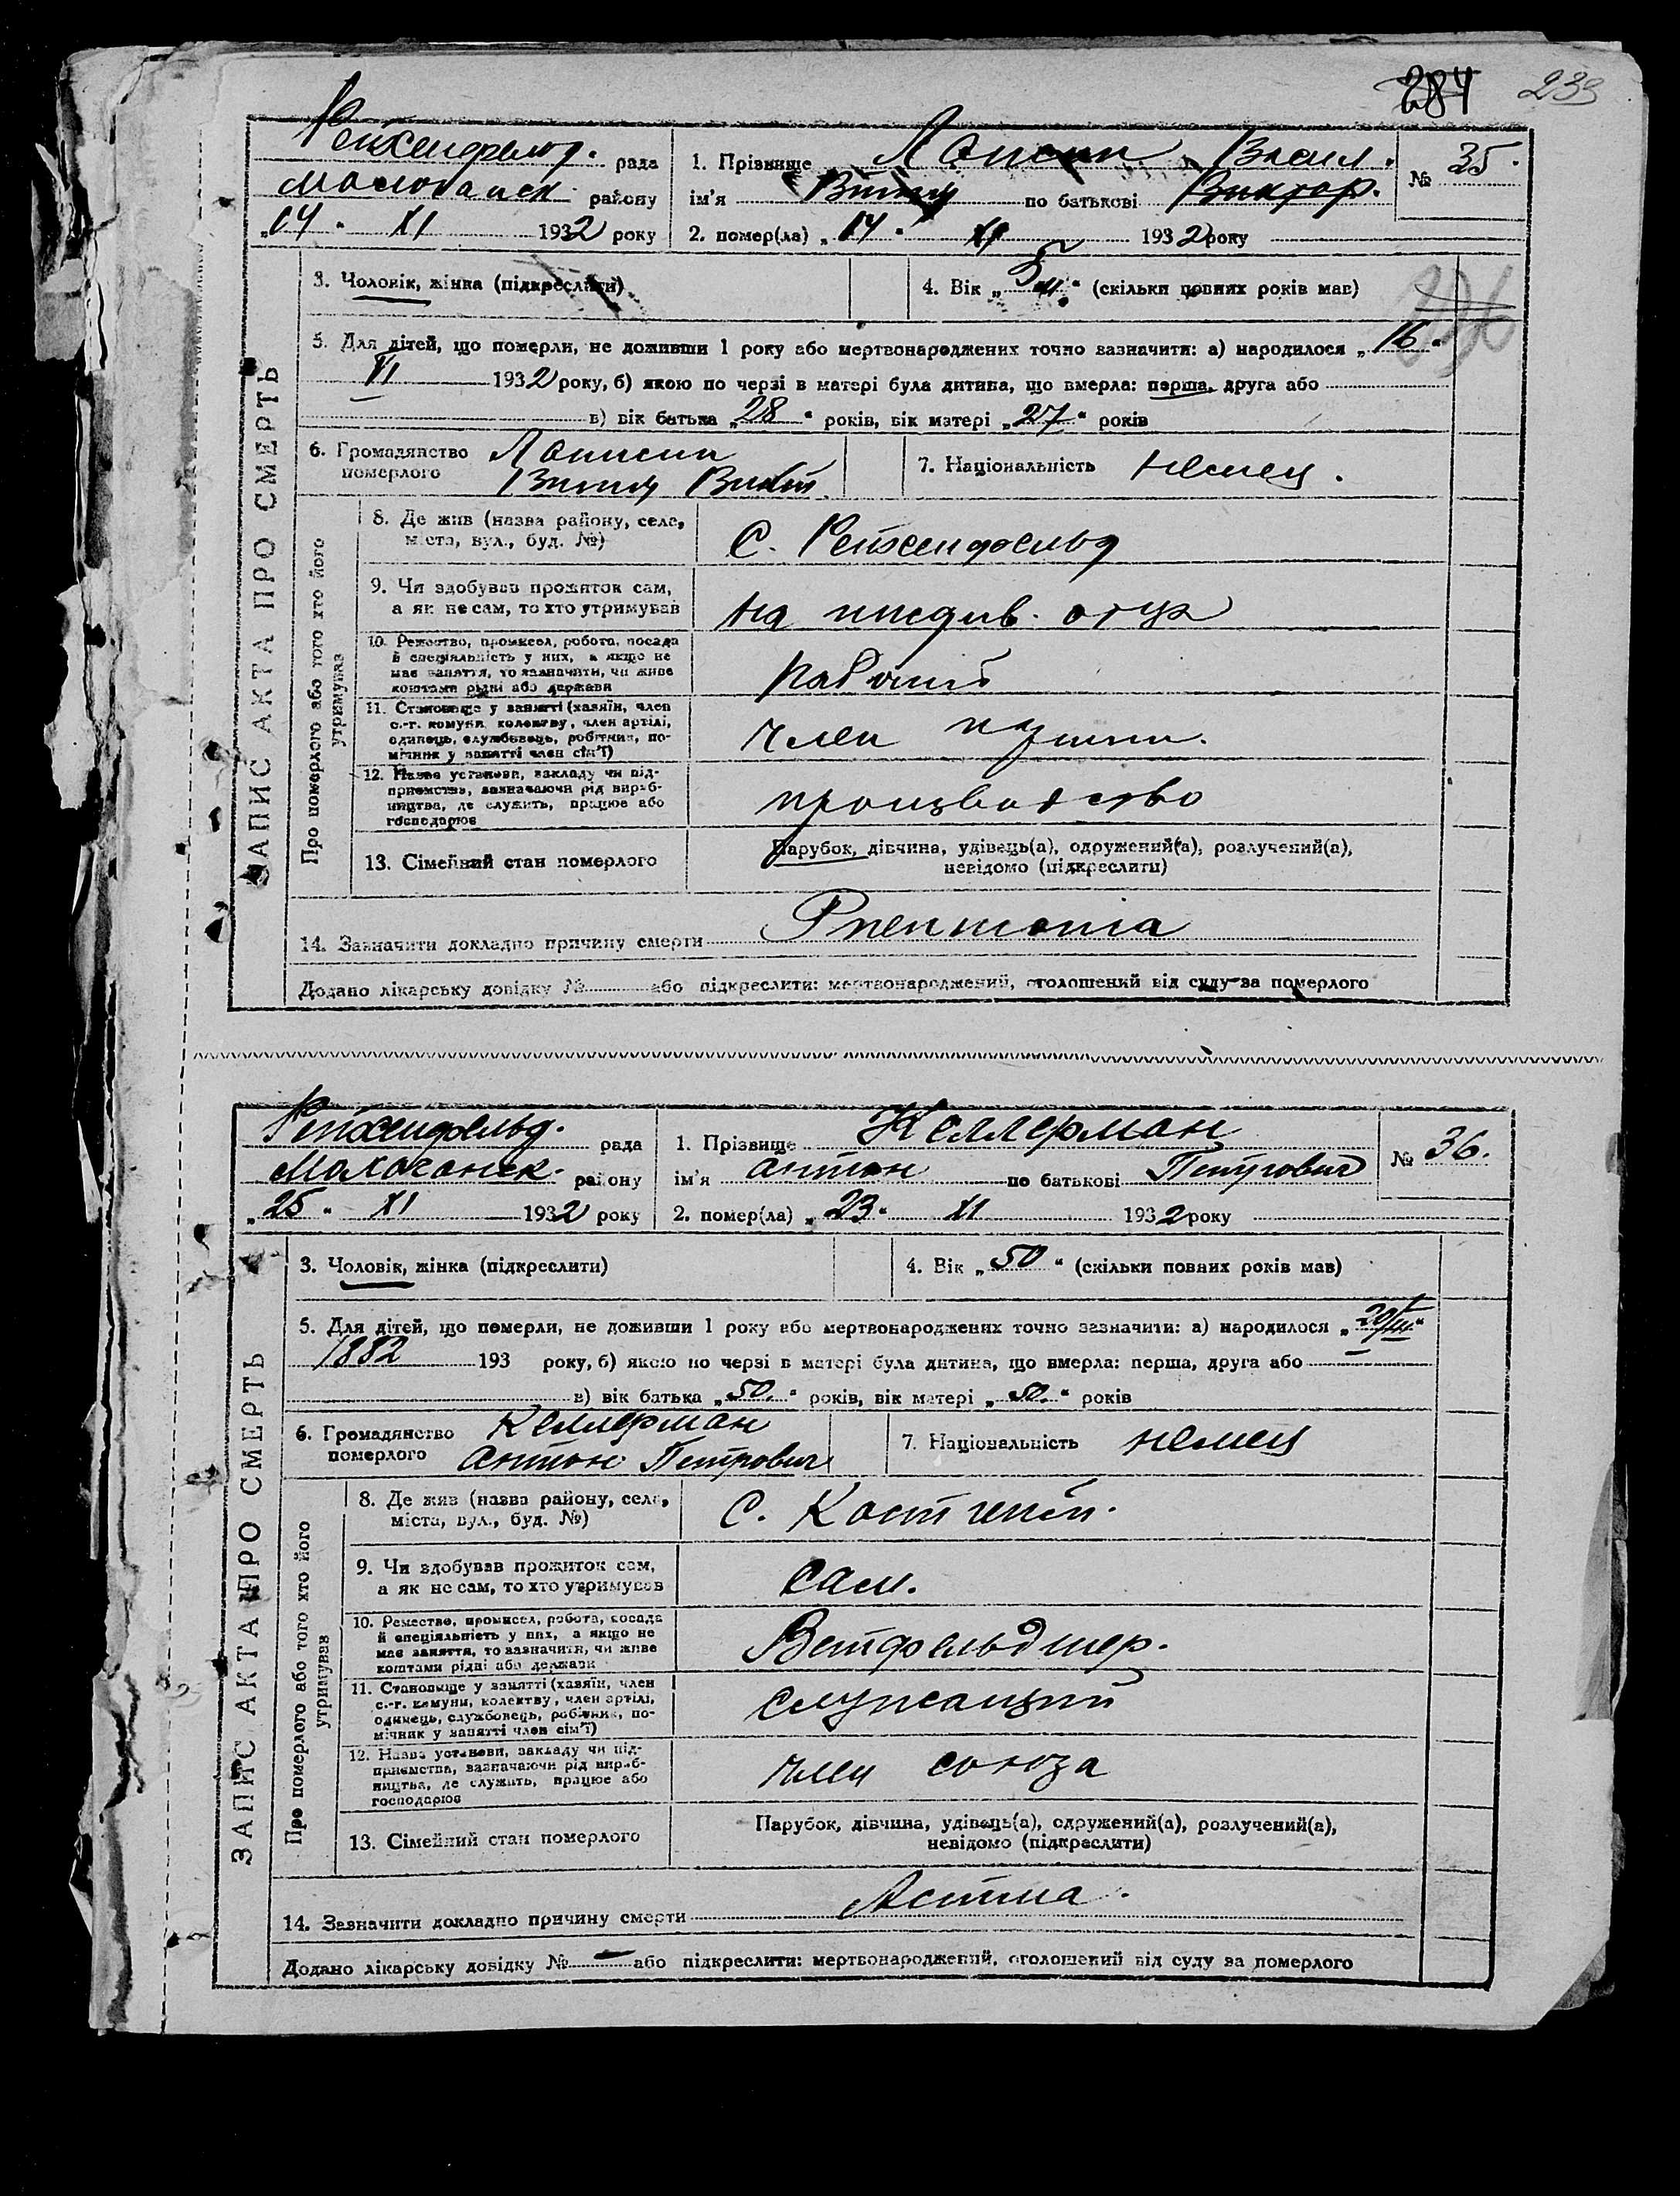 284 239
Рейхенфельд. рада
Молочанск района
району
"14" XI 1932 року
1. Прізвище Василь.
ім'я Виллу по батькові Виктор.
2. помер(ла) "14" XI 1932 року
№ 35.
ЗАПИС АКТА ПРО СМЕРТЬ
3. Чоловік, жінка (підкреслити)
4. Вік "5 м." (скільки повних років мав)
5. Для дітей, що померли, не доживши 1 року або мертвонароджених точно зазначити: а) народилося "16"
VI 1932 року, б) якою по черзі в матері була дитина, що вмерла: перша, друга або
в) вік батька "28" років, вік матері "27" років
6. Громадянство
померлого
7. Національність немец.
Про померлого або того хто його утримував
8. Де жив (назва району, села,
міста, вул., буд. №)
С. Рейхенфельд
9. Чи здобував прожиток сам,
а як не сам, то хто утримував
на иждив. отца
10. Ремество, промисел, робота, посада
й спеціяльність у них, а якщо не
має заняття, то зазначити, чи живе
коштами рідні або держави
рабочий
11. Становище у занятті (хазяїн, член
с.-г. комуни, колективу, член артілі,
одинець, службовець, робітник, по-
мічник у занятті член сім'ї)
член
12. Назва установи, закладу чи під-
приємства, зазначаючи рід вироб-
ництва, де служить, працює або
господарює
производство
13. Сімейний стан померлого
Парубок, дівчина, удівець(а), одружений(а), розлучений(а),
невідомо (підкреслити)
14. Зазначити докладно причину смерти Pneumonia
Додано лікарську довідку № або підкреслити: мертвонароджений, оголошений від суду за померлого
Рейхенфельд. рада
Молочанск. району
"25" XI 1932 року
1. Прізвище Келлерман
ім'я Антон по батькові Петрович
2. помер(ла) "23" XI 1932 року
№ 36.
ЗАПИС АКТА ПРО СМЕРТЬ
3. Чоловік, жінка (підкреслити)
4. Вік "50" (скільки повних років мав)
5. Для дітей, що померли, не доживши 1 року або мертвонароджених точно зазначити: а) народилося "20/III"
1882 193 року, б) якою по черзі в матері була дитина, що вмерла: перша, друга або
в) вік батька "50." років, вік матері "50." років
6. Громадянство Келлерман
померлого Антон Петрович
7. Національність немец
Про померлого або того хто його утримував
8. Де жив (назва району, села,
міста, вул., буд. №)
С. Костгейм.
9. Чи здобував прожиток сам,
а як не сам, то хто утримував
сам.
10. Ремество, промисел, робота, посада
й спеціяльність у них, а якщо не
має заняття, то зазначити, чи живе
коштами рідні або держави
Ветфельдшер.
11. Становище у занятті (хазяїн, член
с.-г. комуни, колективу, член артілі,
одинець, службовець, робітник, по-
мічник у занятті член сім'ї)
служащий
12. Назва установи, закладу чи під-
приємства, зазначаючи рід вироб-
ництва, де служить, працює або
господарює
член союза
13. Сімейний стан померлого
Парубок, дівчина, удівець(а), одружений(а), розлучений(а),
невідомо (підкреслити)
14. Зазначити докладно причину смерти Астма.
Додано лікарську довідку № — або підкреслити: мертвонароджений, оголошений від суду за померлого